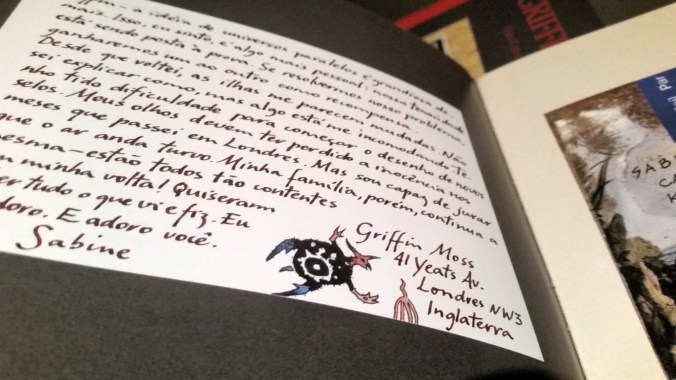 Griffin – a idéia de universos paralelos é grandiosa de-
mais. Isso, eu sinto, é algo mais pessoal: nossa tenacidade
está sendo posta à prova. Se resolvermos nosso problema
ganharemos um ao outro como recompensa.
Desde que voltei, as ilhas me parecem mudadas. Não
sei explicar como, mas algo está me incomodando. Te-
nho tido dificuldade para começar o desenho de novos
selos. Meus olhos devem ter perdido a inocência nos
meses que passei em Londres. Mas sou capaz de jurar
que o ar anda turvo. Minha família, porém, continua a
mesma – estão todos tão contentes
minha volta! Quiseram
tudo o que vi e fiz. Eu
adoro. E adoro você.
Sabine
Griffin Moss
41 Yeats Av.
Londres NW3
Inglaterra
GRIFF
Par
SABI